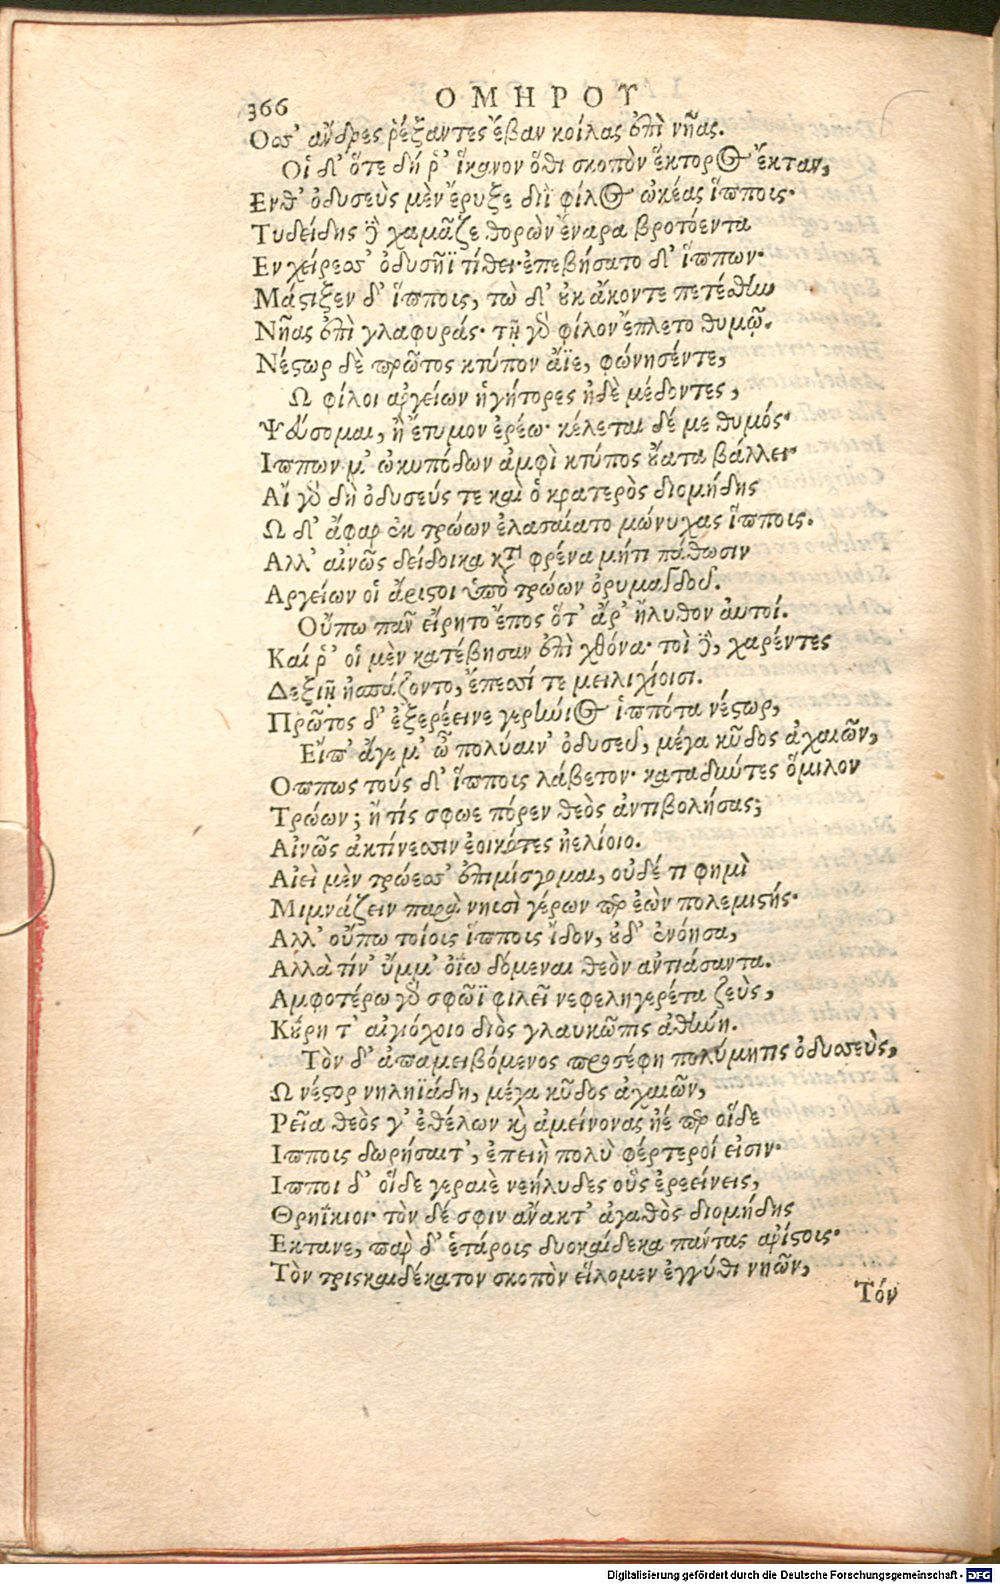 366
ΟΜΗΡΟΥ
Οσσ' ἄνδρες ῥέξαντες ἔβαν κοίλας ἐπὶ νῆας.
Οἱ δ' ὅτε δή ῥ' ἵκανον ὅθι σκοπὸν ἕκτορος ἔκταν,
Ενθ' ὀδυσεὺς μὲν ἔρυξε διῒ φίλος ὠκέας ἵππους·
Τυδείδης δὲ χαμᾶζε θορὼν ἔναρα βροτόεντα
Εν χείρεσσ' ὀδυσῆϊ τίθει· ἐπεβήσατο δ' ἵππων·
Μάστιξεν δ' ἵππους, τὼ δ' οὐκ ἄκοντε πετέσθην
Νῆας ἐπὶ γλαφυράς· τῇ γὰρ φίλον ἔπλετο θυμῷ.
Νέστωρ δὲ πρῶτος κτύπον ἄϊε, φώνησέντε,
Ω φίλοι ἀργείων ἡγήτορες ἠδὲ μέδοντες,
Ψεύσομαι, ἢ ἔτυμον ἐρέω· κέλεται δέ με θυμός·
Ιππων μ' ὠκυπόδων ἀμφὶ κτύπος οὔατα βάλλει·
Αἲ γὰρ δὴ ὀδυσεύς τε καὶ ὁ κρατερὸς διομήδης
Ω δ' ἄφαρ ἐκ τρώων ἐλασαίατο μώνυχας ἵππους.
Αλλ' αἰνῶς δείδοικα κατὰ φρένα μήτι πάθωσιν
Αργείων οἱ ἄριστοι ὑπὸ τρώων ὀρυμαγδοῦ.
Οὔπω πᾶν εἴρητο ἔπος ὅτ' ἄρ' ἤλυθον αὐτοί.
Καί ῥ' οἱ μὲν κατέβησαν ἐπὶ χθόνα· τοὶ δὲ, χαρέντες
Δεξιῇ ἠσπάζοντο, ἔπεσσί τε μειλιχίοισι.
Πρῶτος δ' ἐξερέεινε γερήνιος ἱππότα νέστωρ,
Εἴπ' ἄγε μ' ὦ πολύαιν' ὀδυσεῦ, μέγα κῦδος ἀχαιῶν,
Οππως τούς δ' ἵππους λάβετον· καταδιώτες ὅμιλον
Τρώων; ἤ τίς σφωε πόρεν θεὸς ἀντιβολήσας;
Αἰνῶς ἀκτίνεσσιν ἐοικότες ἠελίοιο.
Αἰεὶ μὲν τρώεσσ' ἐπιμίσγομαι, οὐδέ τι φημὶ
Μιμνάζειν παρὰ νηυσὶ γέρων περ ἐὼν πολεμιστής·
Αλλ' οὔπω τοίους ἵππους ἴδον, οὐδ' ἐνόησα,
Αλλὰ τίν' ὔμμ' ὀΐω δόμεναι θεὸν ἀντιάσαντα.
Αμφοτέρω γὰρ σφῶϊ φιλεῖ νεφεληγερέτα ζεὺς,
Κούρη τ' αἰγιόχοιο διὸς γλαυκῶπις ἀθήνη.
Τὸν δ' ἀπαμειβόμενος προσέφη πολύμητις ὀδυσσεὺς,
Ω νέστορ νηληϊάδη, μέγα κῦδος ἀχαιῶν,
Ρεῖα θεὸς γ' ἐθέλων καὶ ἀμείνονας ἠέ περ οἵδε
Ιππους δωρήσαιτ', ἐπειὴ πολὺ φέρτεροί εἰσιν·
Ιπποι δ' οἵδε γεραιὲ νεήλυδες οὓς ἐρεείνεις,
Θρηΐκιοι· τὸν δέ σφιν ἄνακτ' ἀγαθὸς διομήδης
Εκτανε, παρ δ' ἑτάρους δυοκαίδεκα πάντας ἀρίστους·
Τὸν τρισκαιδέκατον σκοπὸν εἵλομεν ἐγγύθι νηῶν,
Τόν
Digitalisierung gefördert durch die Deutsche Forschungsgemeinschaft - DFG